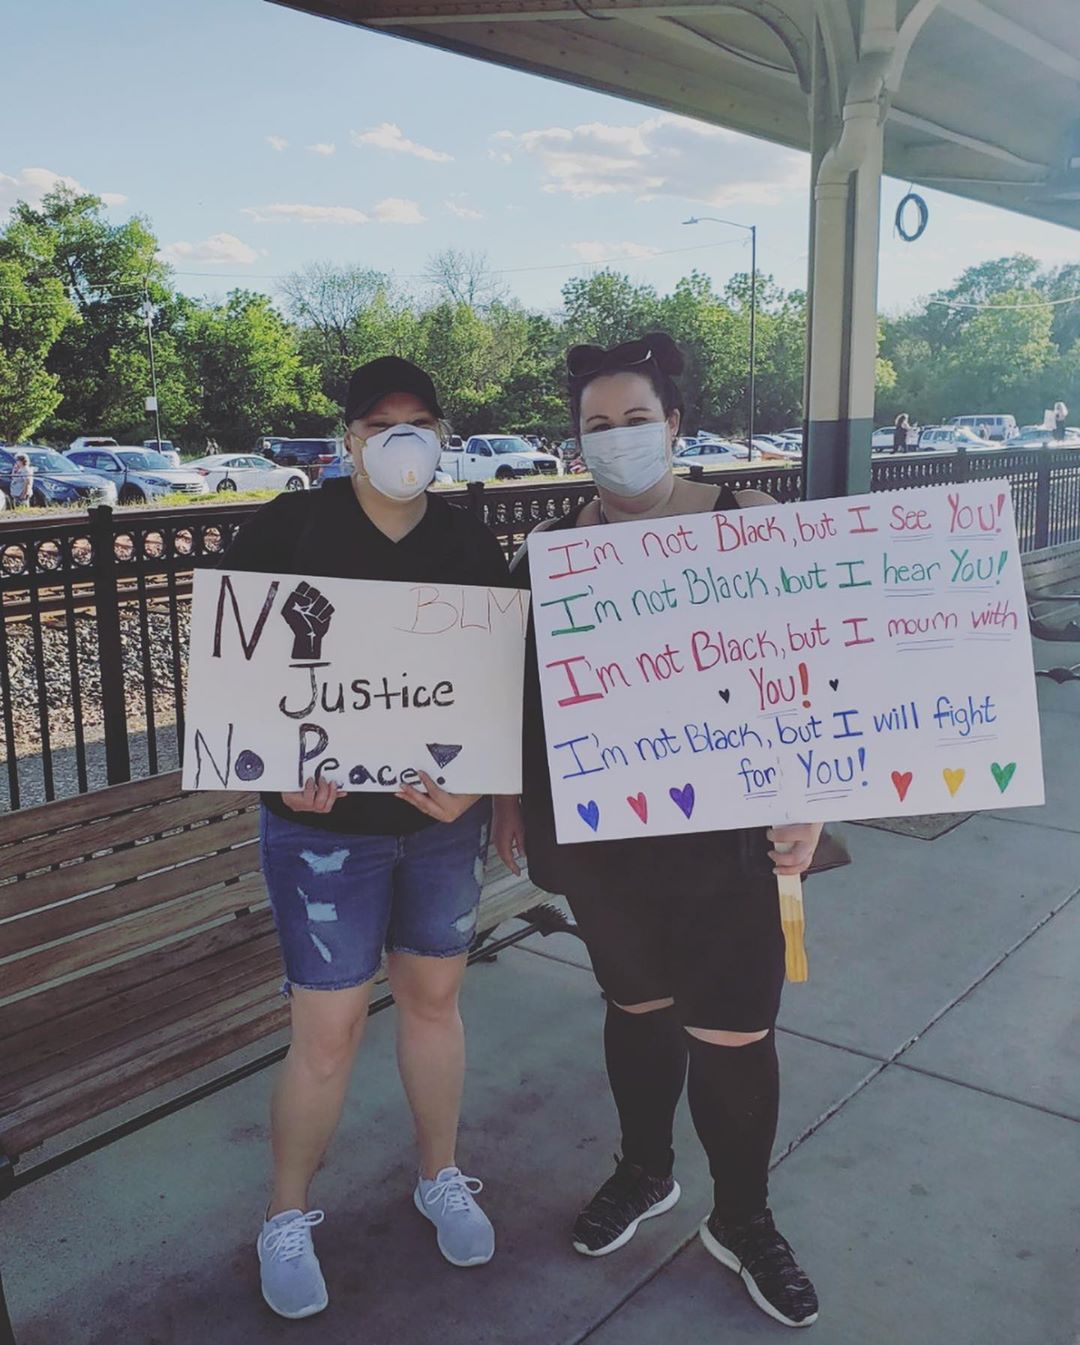 No
BLM
Justice
No Peace!
I'm not Black, but I see You!
I'm not Black, but I hear You!
I'm not Black, but I mourn with
You!
I'm not Black, but I will fight
for You!